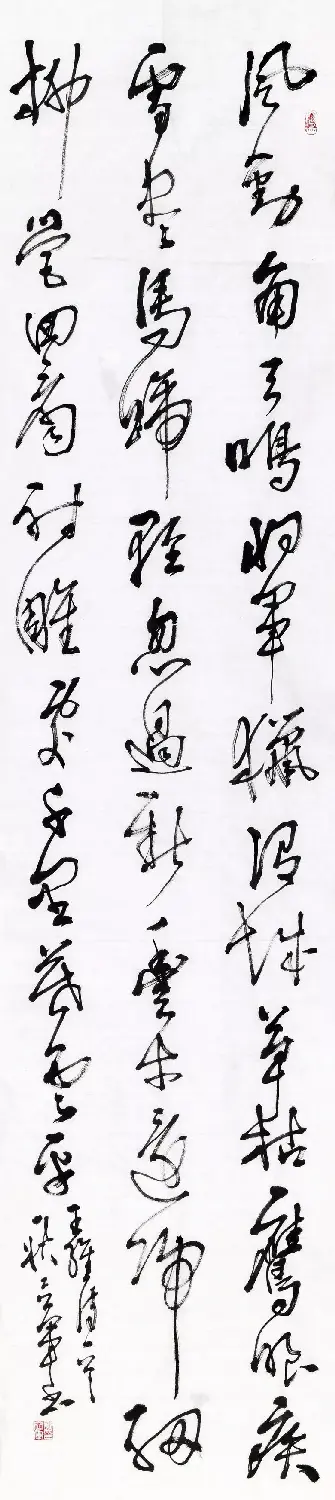 風勁角弓鳴將軍獵渭城草枯鷹眼疾
雪盡馬蹄輕忽過新豐市還歸細
柳營回看射雕處千里暮雲平
王維詩一首